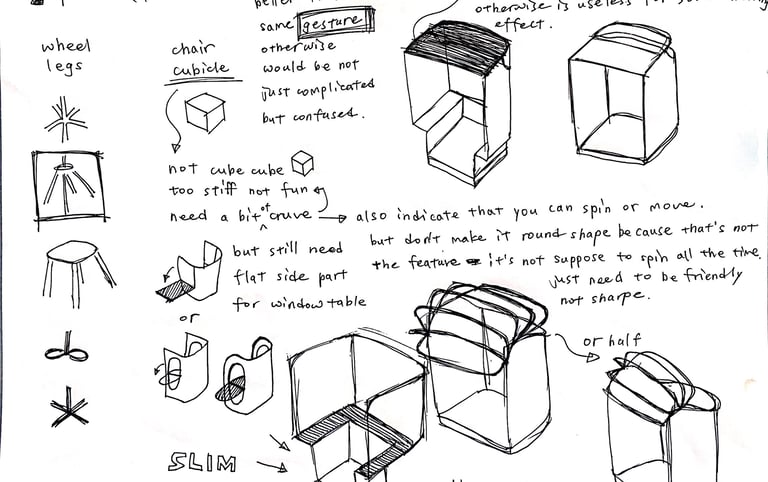 same gesture
otherwise
would be not
just complicated
but confused.
otherwise is useless for
effect.
wheel
legs
chair
cubicle
not cube cube
too stiff not fun
need a bit of cruve
also indicate that you can spin or move.
but don't make it round shape because that's not
the feature it's not suppose to spin all the time.
just need to be friendly
not sharpe.
but still need
flat side part
for window table
or
or half
SLIM